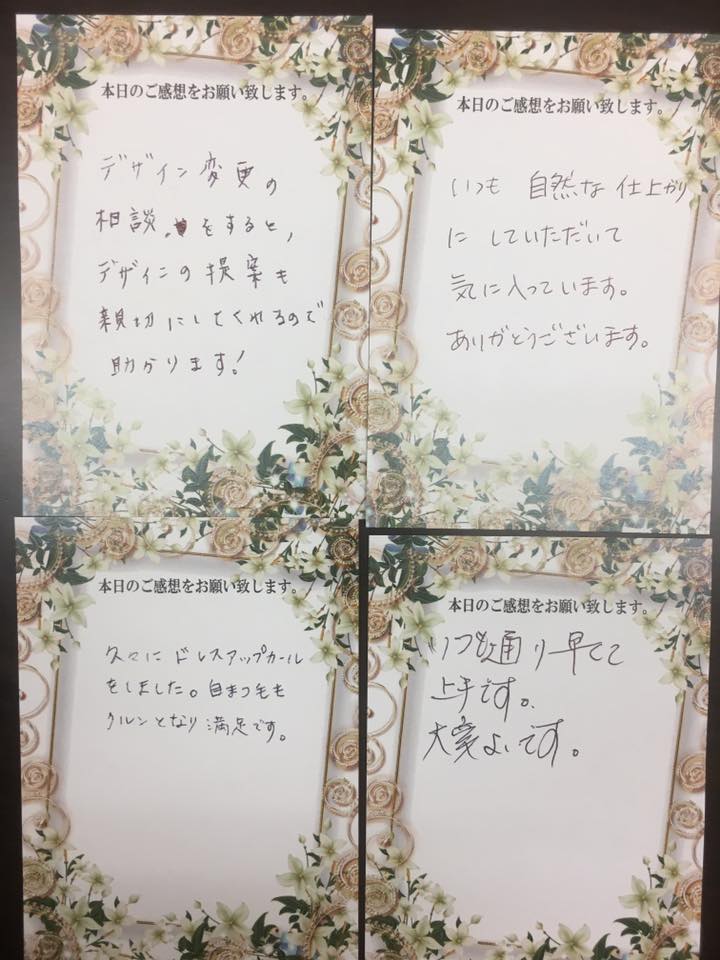 本日のご感想をお願い致します。
デザイン変更の
相談、をすると、
デザインの提案も
親切にしてくれるので
助かります!
本日のご感想をお願い致します。
いつも 自然な 仕上がり
に していただいて
気に入っています。
ありがとうございます。
本日のご感想をお願い致します。
久々に ドレスアップカール
をしました。自まつ毛も
クルンとなり 満足です。
本日のご感想をお願い致します。
いつも通り早くて
上手です。
大変よいです。